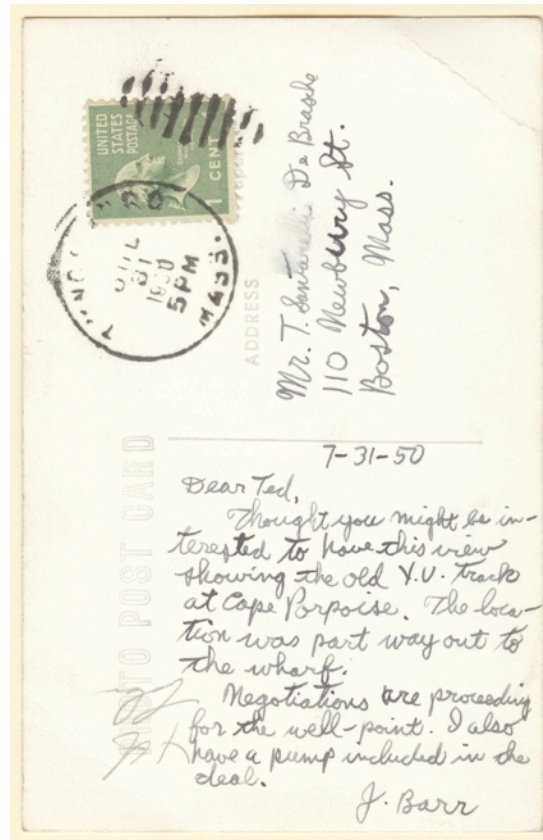 UNITED
STATES
POSTAGE
1 CENT
JUL
31
1950
5 PM
MASS.
ADDRESS
Mr. T. Santarelli De Brasle
110 Newbury St.
Boston, Mass.
PHOTO POST CARD
7-31-50
Dear Ted,
Thought you might be in-
terested to have this view
showing the old Y.U. track
at Cape Porpoise. The loca-
tion was part way out to
the wharf.
Negotiations are proceeding
for the well-point. I also
have a pump included in the
deal.
J. Barr